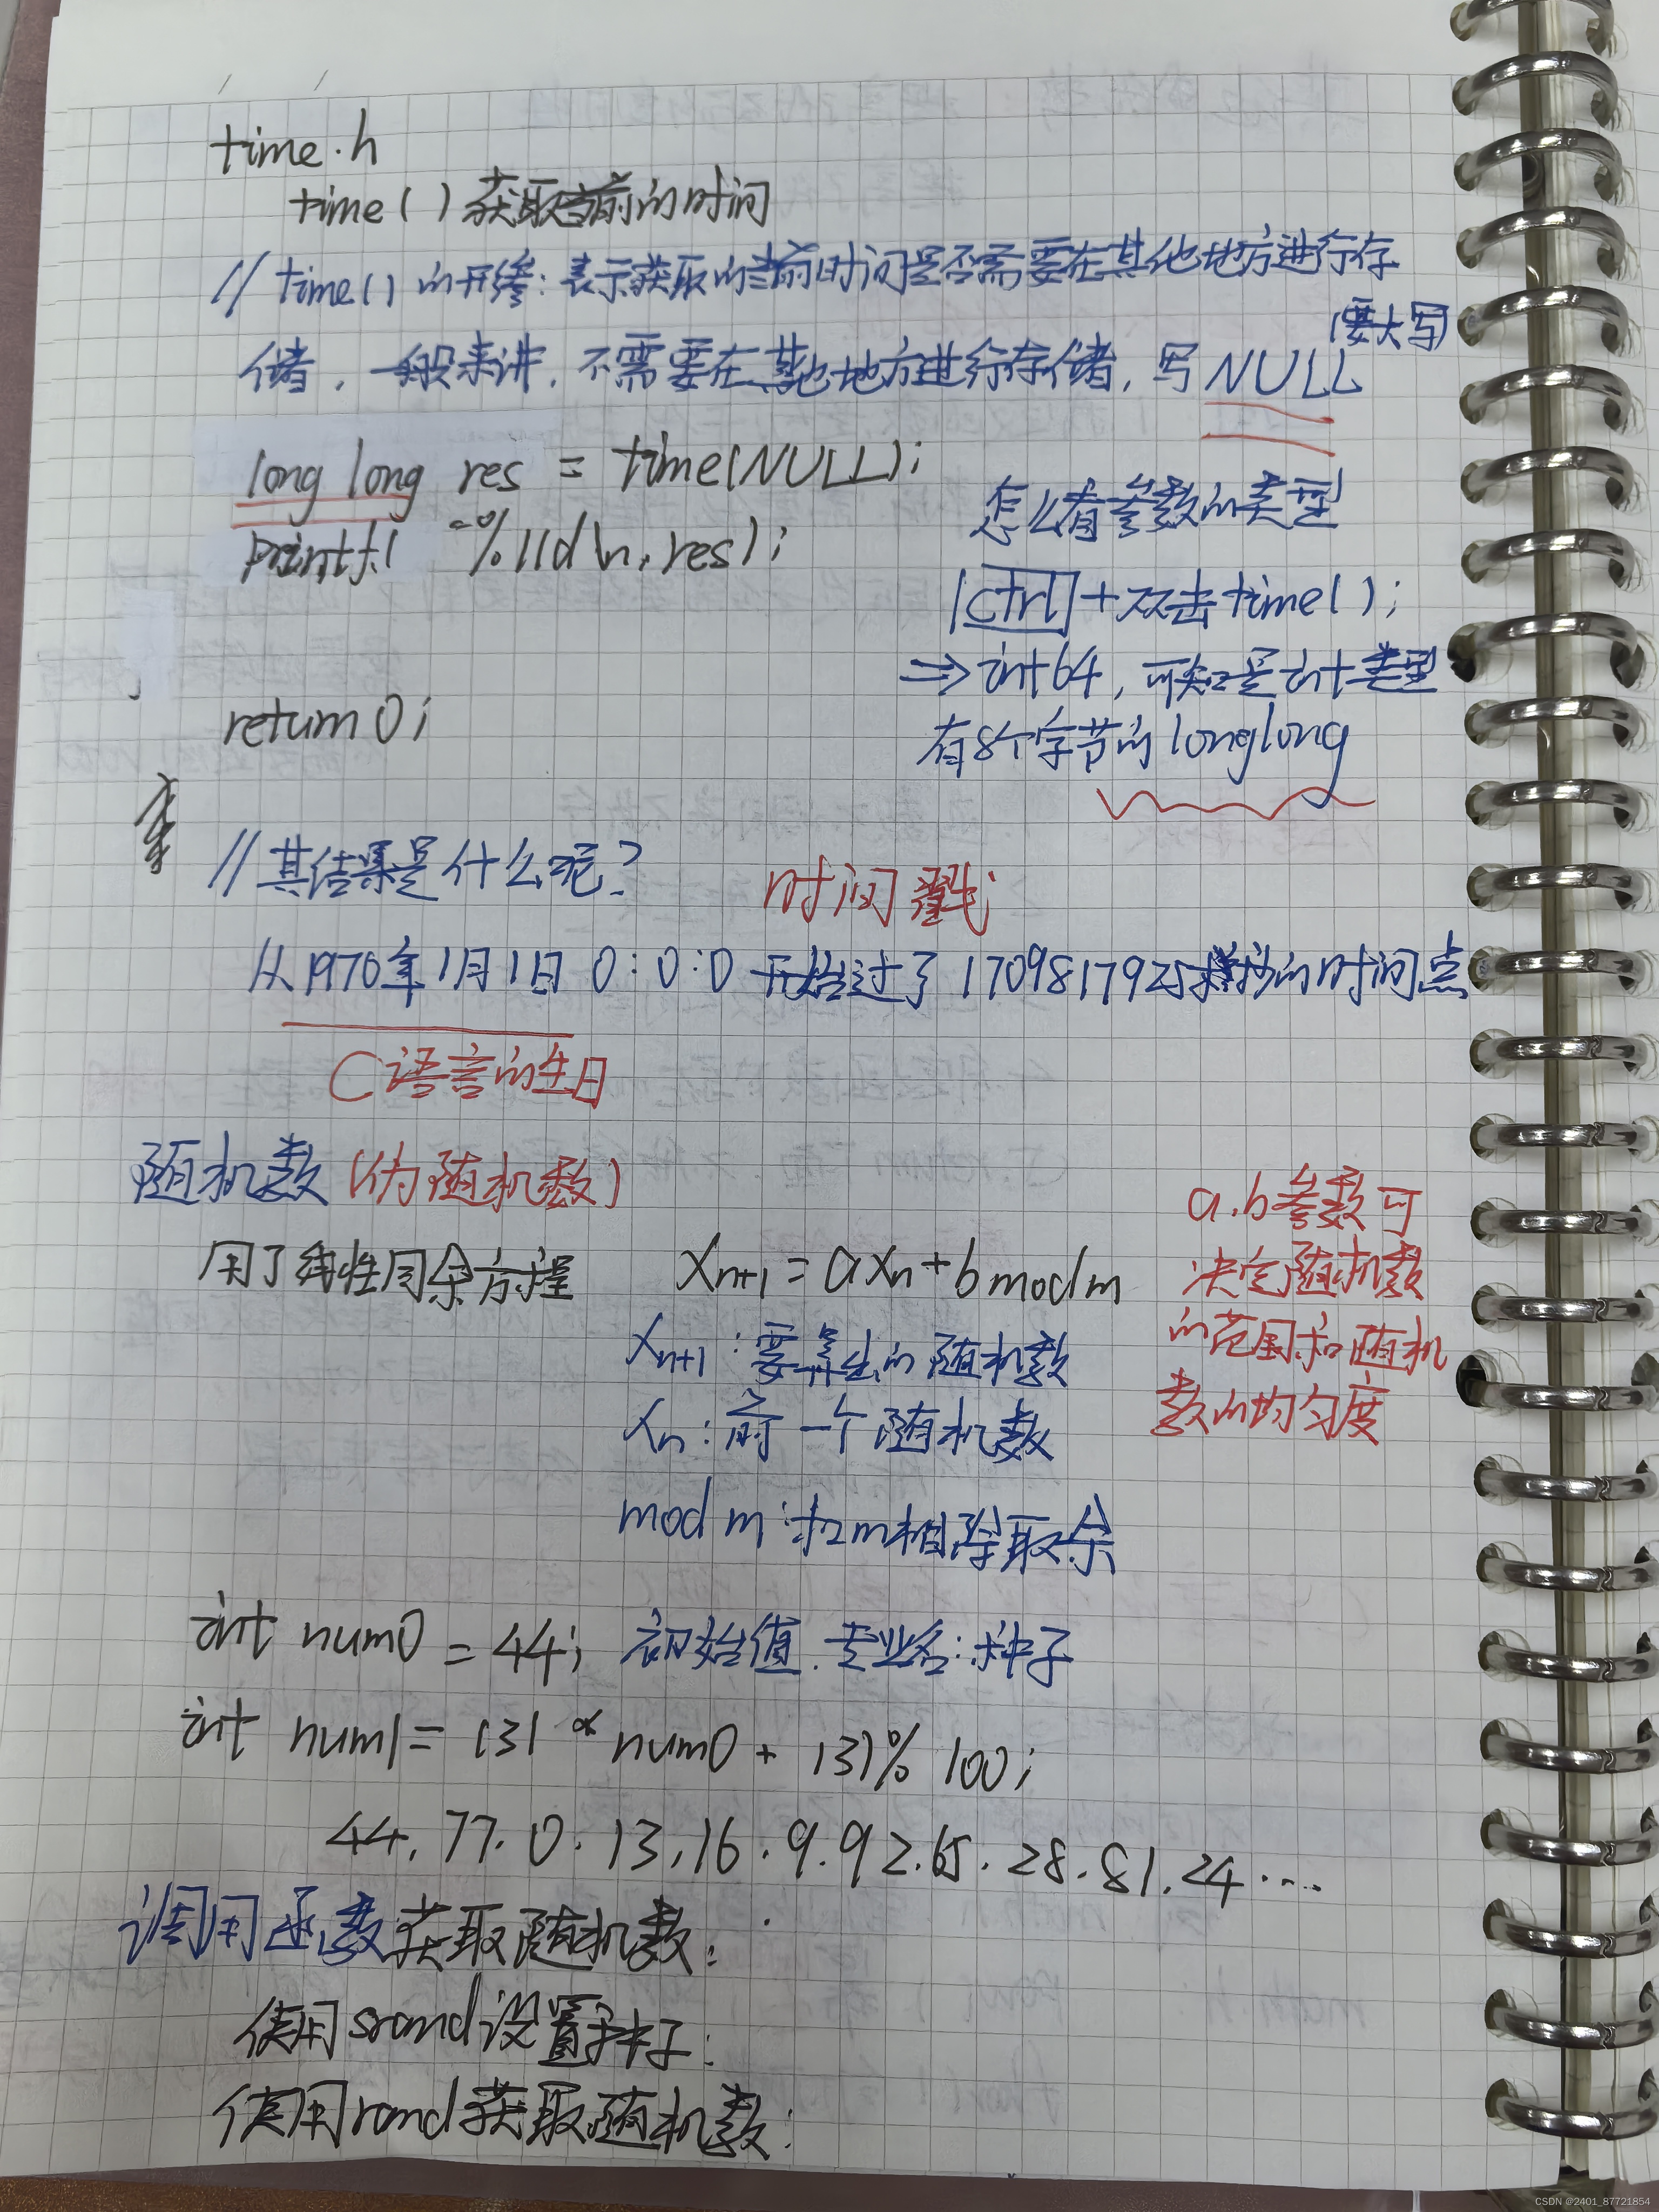 time.h
time()获取当前的时间
// time()的形参:表示获取的当前时间是否需要在其他地方进行存
(要大写)
储,一般来讲,不需要在其他地方进行存储,写NULL
long long res = time(NULL);
printf("%lld\n,res);
怎么看参数的类型
ctrl+双击time();
⇒int64,可知是int类型
有8个字节的longlong
return 0;
//其结果是什么呢?
时间戳
从1970年1月1日 0:0:0 开始过了1709817925秒的时间点
C语言的生日
随机数(伪随机数)
用了线性同余方程 Xn+1 = aXn+b mod m
Xn+1:要算出的随机数
Xn:前一个随机数
mod m:和m相除取余
a.b参数可
决定随机数
的范围和随机
数的均匀度
int num0 = 44; 初始值.专业名:种子
int num1= (31 * num0 + 13)% 100;
44.77.0.13.16.9.92.65.28.81.24....
调用函数获取随机数:
使用srand设置种子:
使用rand获取随机数:
CSDN @2401_87721854